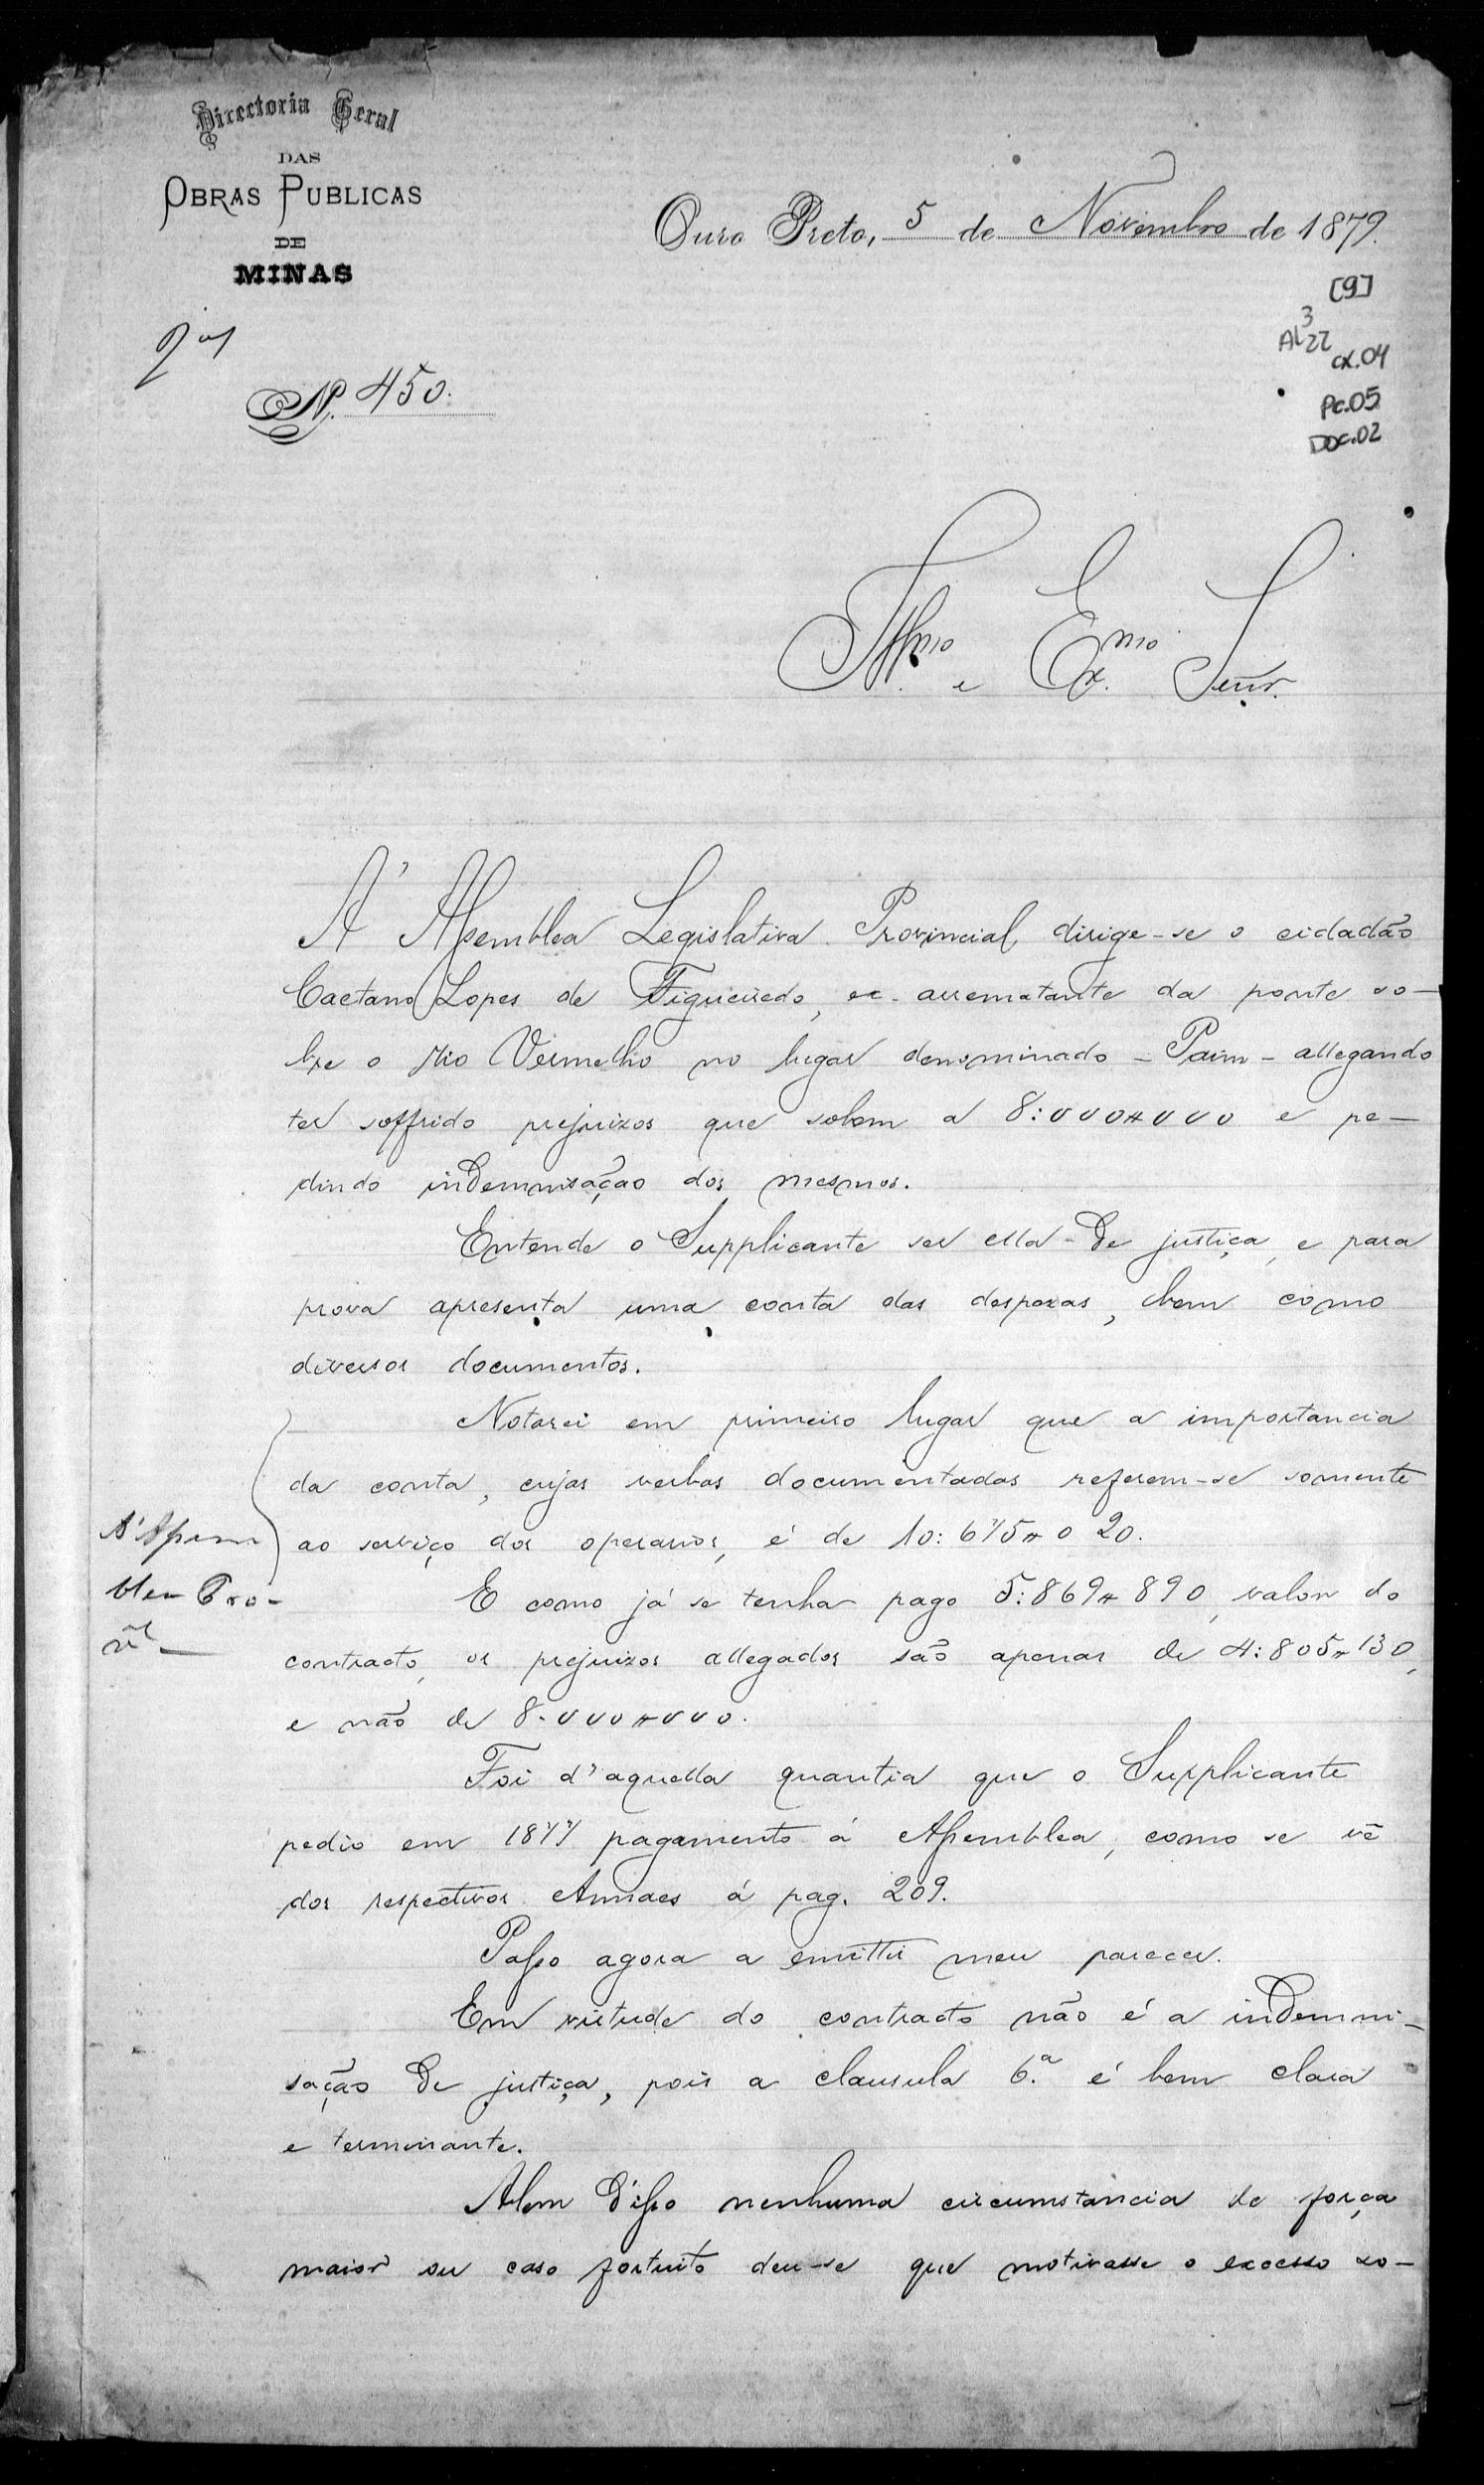 Directoria Geral
DAS
OBRAS PUBLICAS
DE
MINAS
Ouro Preto, 5 de Novembro de 1879.
[9]
AL 3
22
cx.04
Pc.05
Doc.02
N. 450.
Illmo. e Exmo. Senr.
A' Assemblea Legislativa Provincial dirige-se o cidadão
Caetano Lopes de Figueiredo, ex-arrematante da ponte so-
bre o Rio Vermelho no lugar denominado - Paim - allegando
ter soffrido prejuizos que sobem a 8:000#000 e pe-
dindo indemnisação dos mesmos.
Entende o Supplicante ser ella de justiça, e para
prova apresenta uma conta das despezas, bem como
diversos documentos.
Notarei em primeiro lugar que a importancia
da conta, cujas verbas documentadas referem-se somente
ao serviço dos operarios, é de 10:675#020.
E como já se tenha pago 5:869#890, valor do
contracto, os prejuizos allegados são apenas de 4:805#130,
e não de 8:000#000.
Foi d'aquella quantia que o Supplicante
pedio em 1877 pagamento á Assemblea, como se vê
dos respectivos Annaes á pag. 209.
Passo agora a emittir meu parecer.
Em virtude do contracto não é a indemni-
sação de justiça, pois a clausula 6.ª é bem clara
e terminante.
Alem d'isso nenhuma circumstancia de força
maior ou caso fortuito deu-se que motivasse o excesso so-
A' Assem
blea Pro-
val